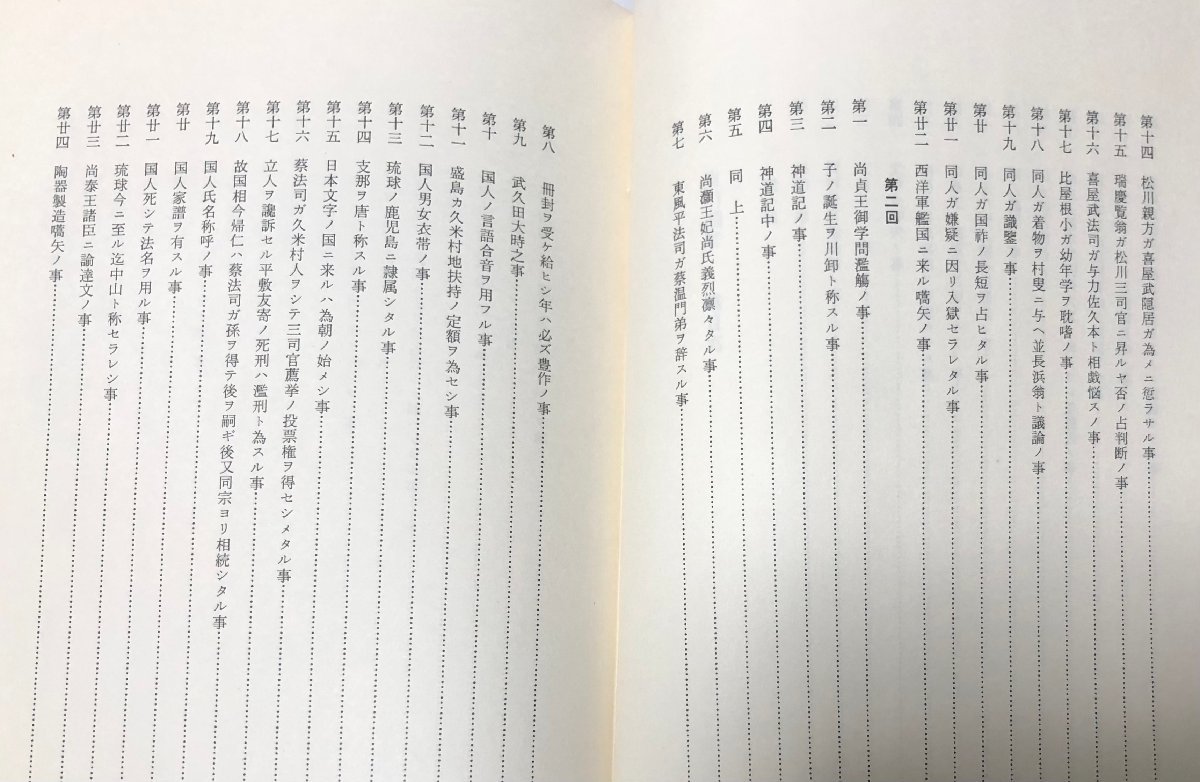 第十四 松川親方ガ喜屋武隠居ガ為メニ愆ラサル事
第十五 瑞慶覧翁ガ松川三司官ニ昇ルヤ否ノ占判断ノ事
第十六 喜屋武法司ガ与力佐久本ト相戯悩スノ事
第十七 比屋根小ガ幼年学ヲ耽嗜ノ事
第十八 同人ガ着物ヲ村叟ニ与ヘ並長浜翁ト議論ノ事
第十九 同人ガ識鑒ノ事
第廿 同人ガ国祚ノ長短ヲ占ヒタル事
第廿一 同人ガ嫌疑ニ因リ入獄セラレタル事
第廿二 西洋軍艦国ニ来ル嚆矢ノ事
第二回
第一 尚貞王御学問濫觴ノ事
第二 子ノ誕生ヲ川卸ト称スル事
第三 神道記ノ事
第四 神道記中ノ事
第五 同 上
第六 尚灝王妃尚氏義烈凛々タル事
第七 東風平法司ガ蔡温門弟ヲ辞スル事
第八 冊封ヲ受ケ給ヒシ年ハ必ズ豊作ノ事
第九 武久田大時之事
第十 国人ノ言語合音ヲ用フル事
第十一 盛島カ久米村地扶持ノ定額ヲ為セシ事
第十二 国人男女衣帯ノ事
第十三 琉球ノ鹿児島ニ隷属シタル事
第十四 支那ヲ唐ト称スル事
第十五 日本文字ノ国ニ来ルハ為朝ノ始メシ事
第十六 蔡法司ガ久米村人ヲシテ三司官薦挙ノ投票権ヲ得セシメタル事
第十七 立人ヲ讒訴セル平敷友寄ノ死刑ハ濫刑ト為スル事
第十八 故国相今帰仁ハ蔡法司ガ孫ヲ得テ後ヲ嗣ギ後又同宗ヨリ相続シタル事
第十九 国人氏名称呼ノ事
第廿 国人家譜ヲ有スル事
第廿一 国人死シテ法名ヲ用ル事
第廿二 琉球今ニ至ル迄中山ト称セラレシ事
第廿三 尚泰王諸臣ニ諭達文ノ事
第廿四 陶器製造嚆矢ノ事